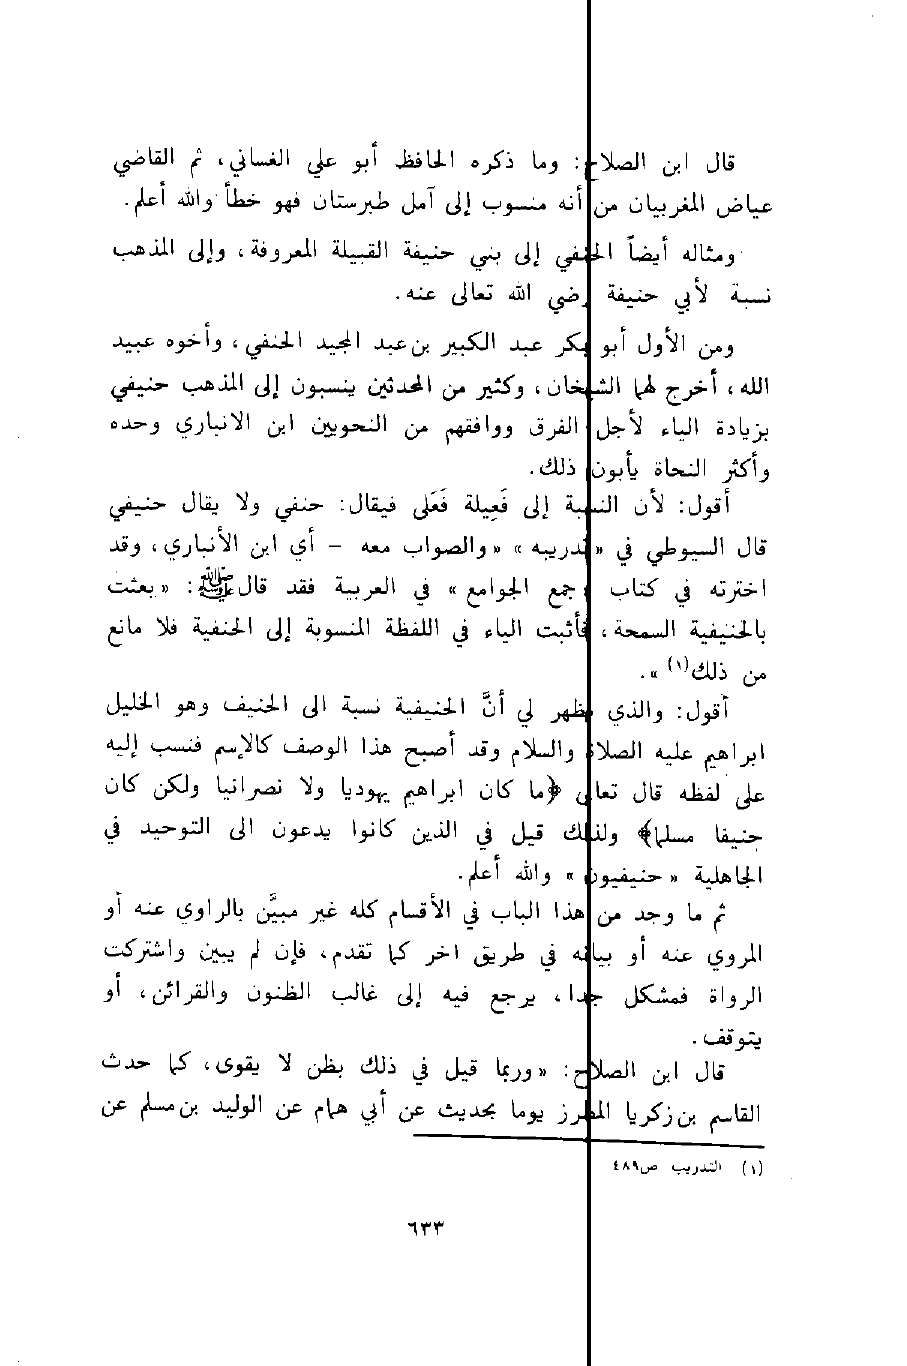 قال ابن الصلاح: وما ذكره الحافظ أبو علي الغساني، ثم القاضي
عياض المغربيان من أنه منسوب إلى آمل طبرستان فهو خطأ والله أعلم.
ومثاله أيضاً الحنفي إلى بني حنيفة القبيلة المعروفة، وإلى المذهب
نسبة لأبي حنيفة رضي الله تعالى عنه.
ومن الأول أبو بكر عبد الكبير بن عبد المجيد الحنفي، وأخوه عبيد
الله، أخرج لهما الشيخان، وكثير من المحدثين ينسبون إلى المذهب حنيفي
بزيادة الياء لأجل الفرق ووافقهم من النحويين ابن الانباري وحده
وأكثر النحاة يأبون ذلك.
أقول: لأن النسبة إلى فَعِيلة فَعَلي فيقال: حنفي ولا يقال حنيفي
قال السيوطي في «تدريبه» «والصواب معه – أي ابن الأنباري، وقد
اخترته في كتاب «جمع الجوامع» في العربية فقد قال ﷺ: «بعثت
بالحنيفية السمحة، فأثبت الياء في اللفظة المنسوبة إلى الحنفية فلا مانع
من ذلك(١)».
أقول: والذي يظهر لي أنَّ الحنيفية نسبة الى الحنيف وهو الخليل
ابراهيم عليه الصلاة والسلام وقد أصبح هذا الوصف كالإسم فنسب إليه
على لفظه قال تعالى ﴿ما كان ابراهيم يهوديا ولا نصرانيا ولكن كان
حنيفا مسلما﴾ ولذلك قيل في الذين كانوا يدعون الى التوحيد في
الجاهلية «حنيفيون» والله أعلم.
ثم ما وجد من هذا الباب في الأقسام كله غير مبيَّن بالراوى عنه أو
المروي عنه أو بيانه في طريق اخر كما تقدم، فإن لم يبين واشتركت
الرواة فمشكل جدا، يرجع فيه إلى غالب الظنون والقرائن، أو
يتوقف.
قال ابن الصلاح: «وربما قيل في ذلك بظن لا يقوى، كما حدث
القاسم بن زكريا المطرز يوما بحديث عن أبي همام عن الوليد بن مسلم عن
(١) التدريب ص٤٨٩
٦٣٣